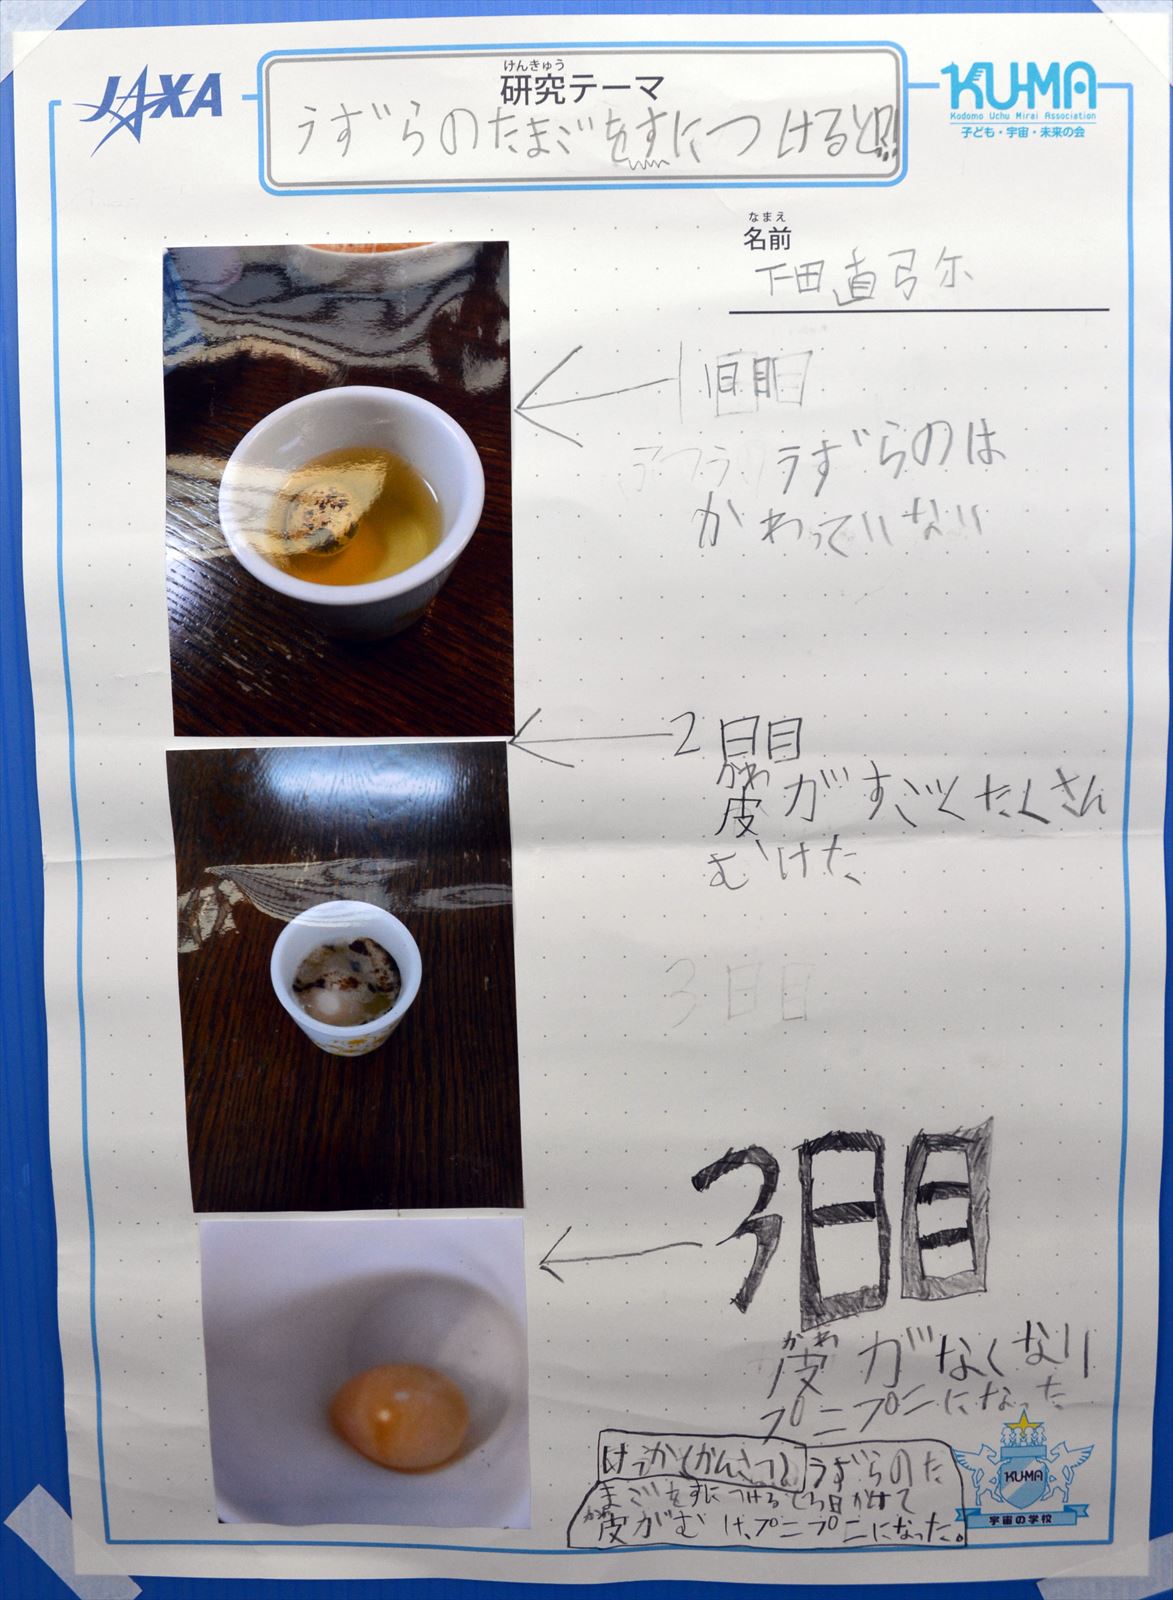 JAXA
けんきゅう
研究テーマ
うずらのたまごをすにつけると!?!
KU-MA
Kodomo Uchu Mirai Association
子ども・宇宙・未来の会
なまえ
名前
下田直弓尓
1日目
うずらのは
かわっていない
2日目
かわ
皮がすごくたくさん
むけた
3日目
3日目
かわ
皮がなくなり
プニプニになった
けっか(かんさつ)うずらのた
まごをすにつけると3日かけて
かわ
皮がむけ、プニプニになった。
KU-MA
宇宙の学校